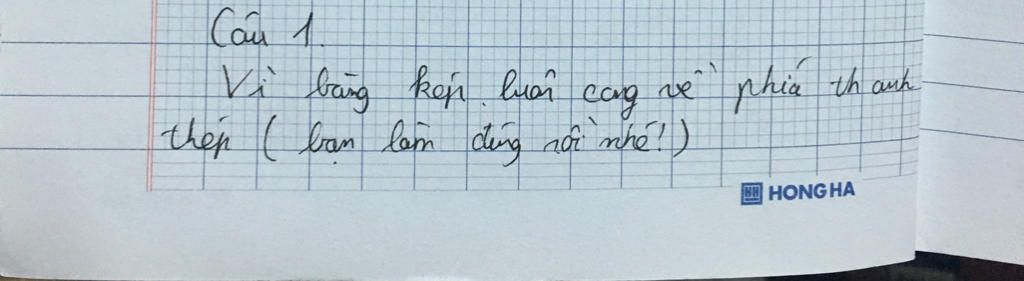 Câu 1.
Vì băng kép luôn cong về phía thanh
thép ( bạn làm đúng rồi nhé! )
HONG HA